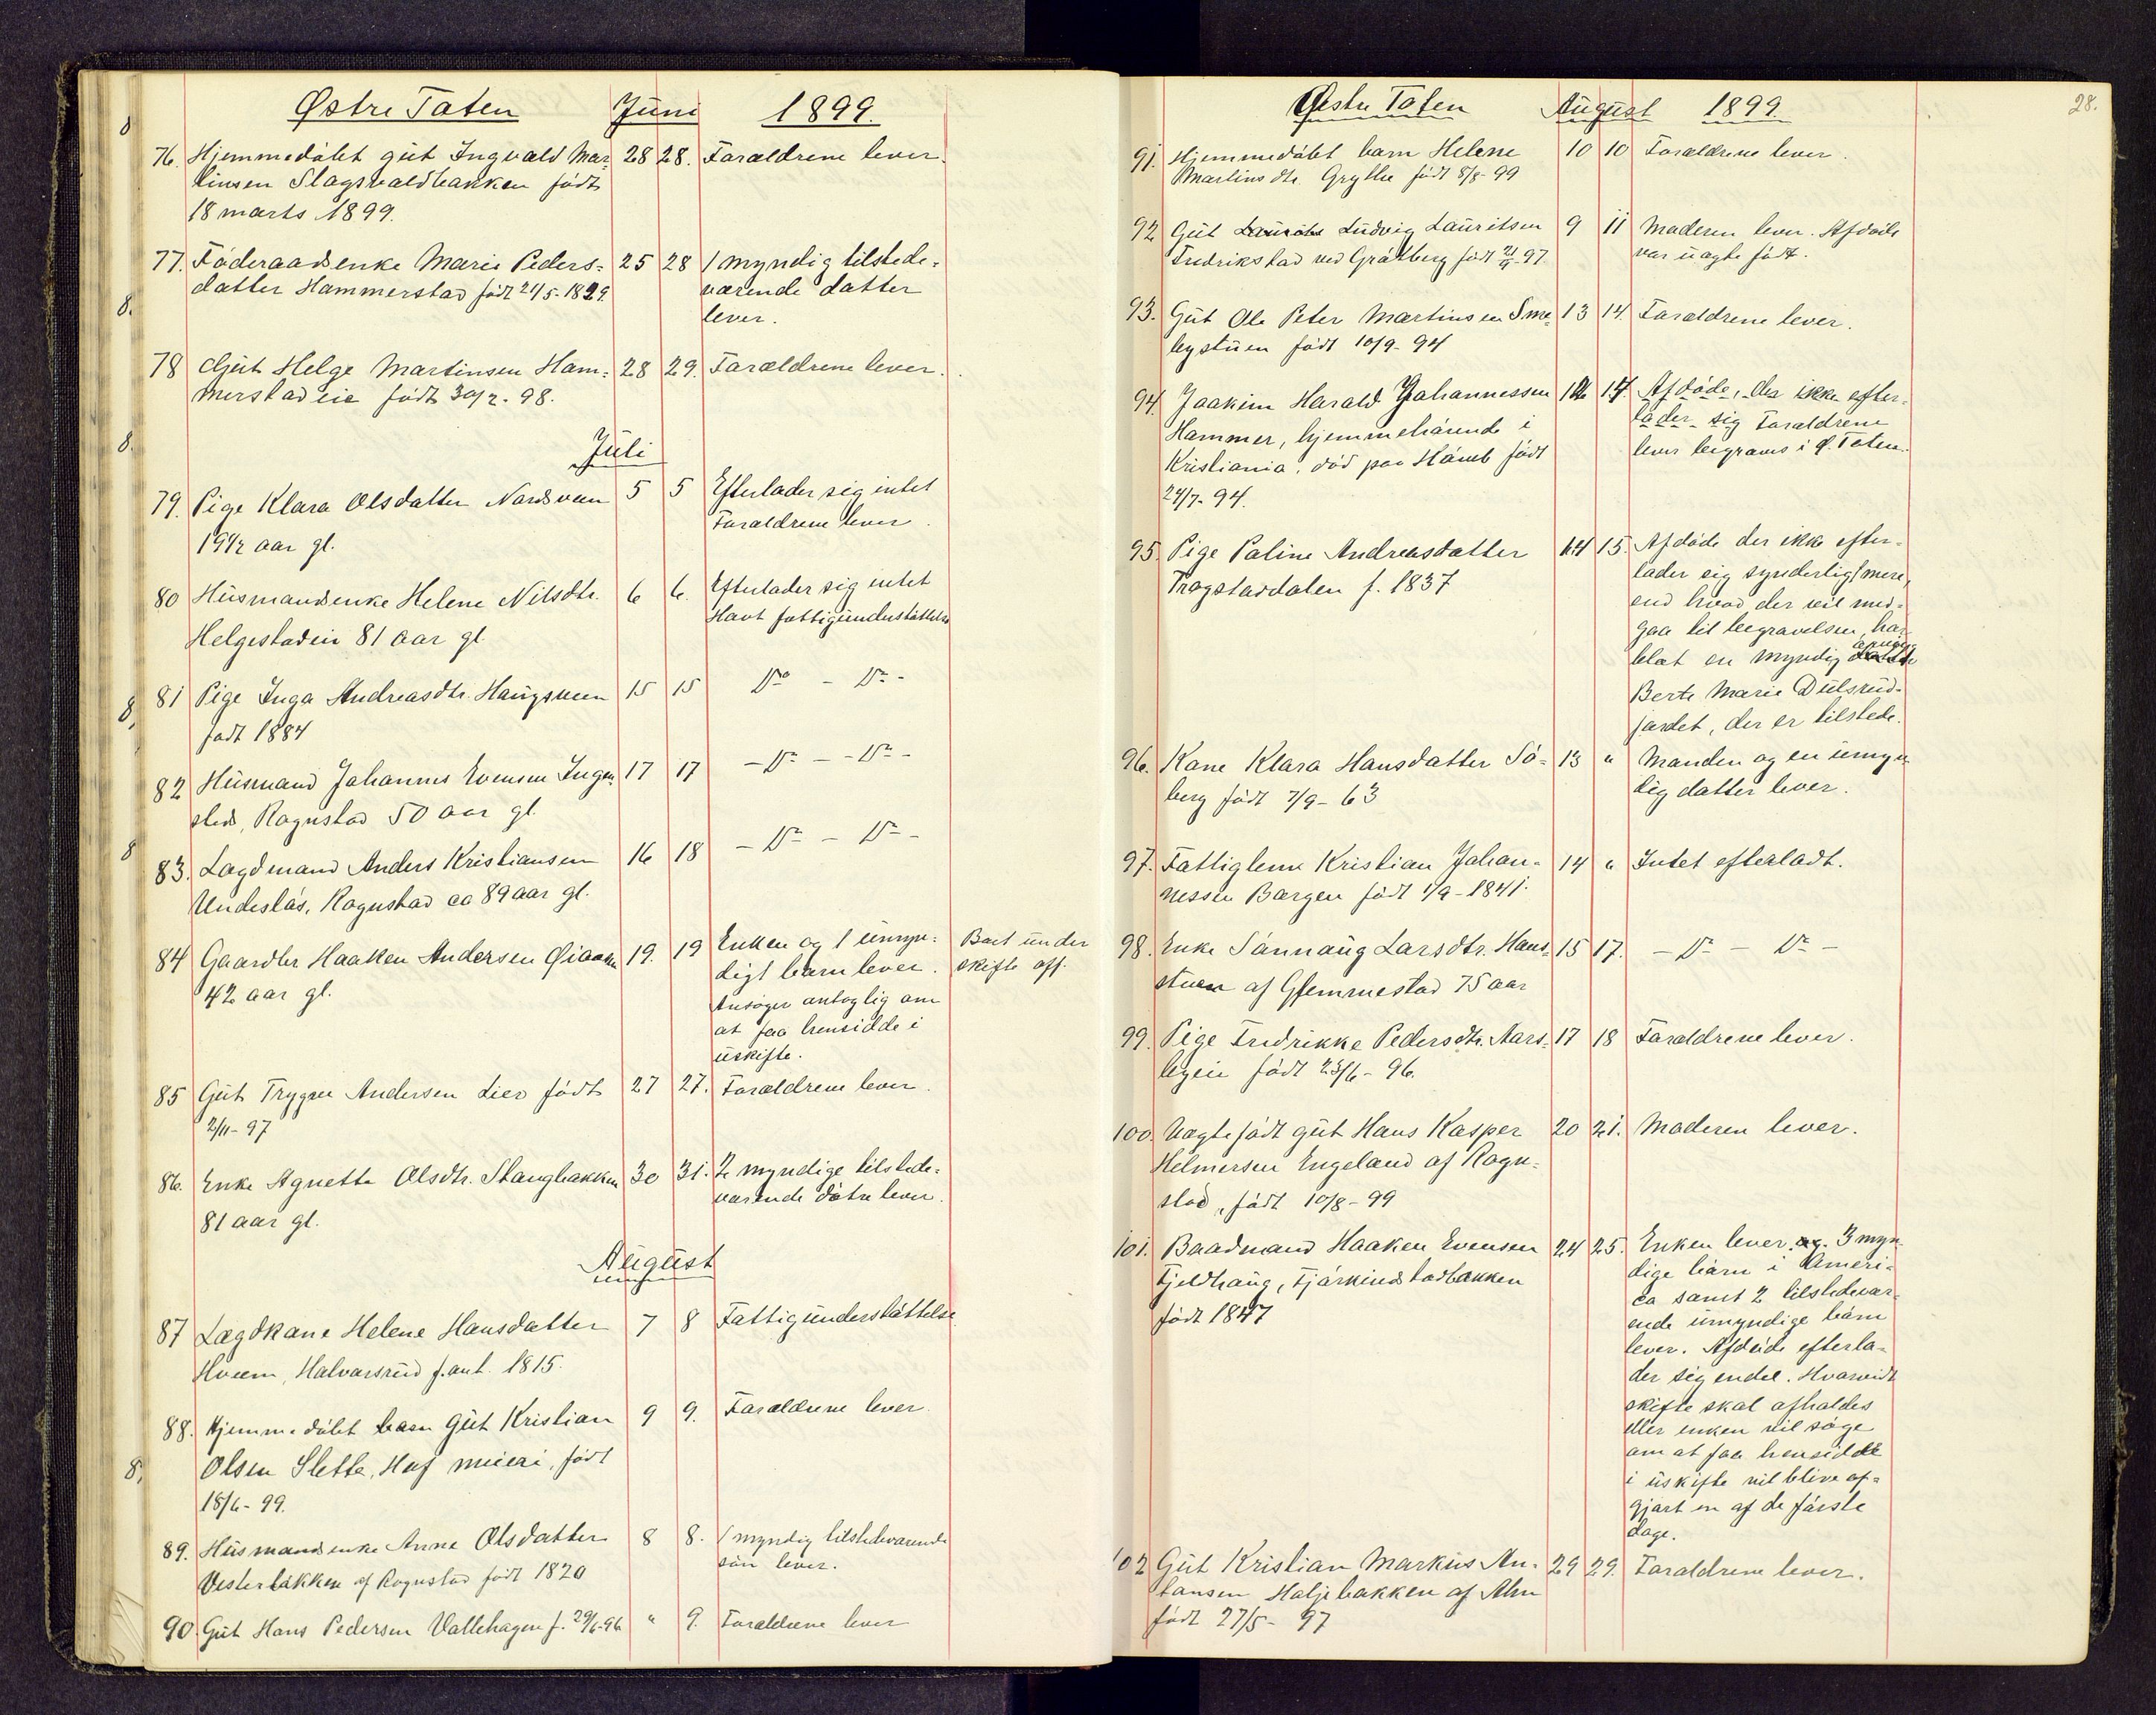 Østre Toten Juni 1899.
76. Hjemmedøbt gut Ingvald Mar= 28 28. Forældrene lever.
tinsen Slagsvoldbakken født
18 marts 1899.
77. Föderaadsenke Marie Peders= 25 28 1 myndig tilstede=
datter Hammerstad født 24/5-1829. værende datter
lever.
78 Gut Helge Martinsen Ham= 28 29. Forældrene lever.
merstadeie født 30/12-98.
Juli
79. Pige Klara Olsdatter Nordsveen 5 5 Efterlader sig intet
19 1/2 aar gl. Forældrene lever.
80 Husmandsenke Helene Nilsdtr. 6 6. Efterlader sig intet
Helgestadeie 81 aar gl. Havt fattigunderstøttelse
81 Pige Inga Andreasdtr. Haugsveen 15 15 Do - Do -
født 1884
82 Husmand Johannes Evensen Inger 17 17 - Do - - Do -
sted, Rognstad 50 aar gl.
83. Lægdmand Anders Kristiansen 16 18 - Do - Do -
Undeslös, Rognstad ca 89 aar gl.
84 Gaardbr Haaken Andersen 19. 19 Enken og 1 umyn= Boet under
42 aar gl. digt barn lever. skifte off.
Ansøger antoglig om
at faa hensidde i
uskifte.
85 Gut Trygve Andersen Lier født 27 27. Forældrene lever.
2/11-97
86. Enke Agnette Olsdtr. Stangbakken 30 31. 2 myndige tilstede=
81 aar gl. værende døtre lever.
August
87 Lægdkone Helene Hansdatter 7 8 Fattigunderstøttelse
Hveem, Halvorsrud f. ant. 1815.
88. Hjemmedøbt barn Gut Kristian 9 9. Forældrene lever.
Olsen Slette, Hof meieri, født
18/6-99.
89. Husmandsenke Anne Olsdatter 8 8. 1 myndig tilstedeværende
Vesterbakken af Rognstad født 1820 søn lever.
90 Gut Hans Pedersen Vallehagen f. 29/6-96 " 9. Forældrene lever
Østre Toten August 1899. 28.
91. Hjemmedøbt barn Helene 10 10 Forældrene lever.
Martinsdtr. Grythe født 8/8-99
92 Gut Ludvig Lauritsen 9 11 Moderen lever. Afdøde
Fredrikstad ved Gråtberg født -97. var uægte født.
93. Gut Ole Peter Martinsen Sme= 13 14. Forældrene lever.
bystuen født 10/9-94
94. Joakim Harald Johannessen 12 14. Afdøde, der ikke efter=
Hammer, hjemmehörende i lader sig Forældrene
Kristiania, död paa født lever begraves i Ø. Toten.
24/7-94.
95. Pige Poline Andreasdatter 14 15. Afdøde der ikke efter=
Trogstaddalen f. 1837 lader sig synderligt mere,
end hvad der vil med=
gaa til begravelsen, har
blot en myndig
Berte Marie Dulsrud=
jordet, der er tilstede.
96. Kone Klara Hansdatter Sö= 13 " Manden og en umyn
berg født 7/9-63 dig datter lever.
97. Fattiglem Kristian Johan= 14 " Intet efterladt.
nessen Borgen født 1/9-1841.
98. Enke Sönnaug Larsdtr. Haus= 15 17. - Do - Do -
stuen af Glemmestad 75 aar
99. Pige Fredrikke Pedersdtr. Aars= 17 18 Forældrene lever.
byeie født 23/6-96.
100. Uægte født gut Hans Kasper 20 21. Moderen lever.
Helmersen Engeland af Rogn=
stad, født 10/8-99
101. Baadmand Haaken Evensen 24 25. Enken lever. og 3 myn
Fjeldhaug, født 1847 dige börn i Ameri=
ca samt 2 tilstedevær
ende umyndige börn
lever. Afdøde efterla=
der sig endel. Hvorvidt
skifte skal afholdes
eller enken vil søge
om at faa hensidde
i uskifte vil blive af=
gjort en af de første
dage.
102 Gut Kristian Markus An= 29 29. Forældrene lever.
tonsen Holjebakken af Alm
født 27/5-97